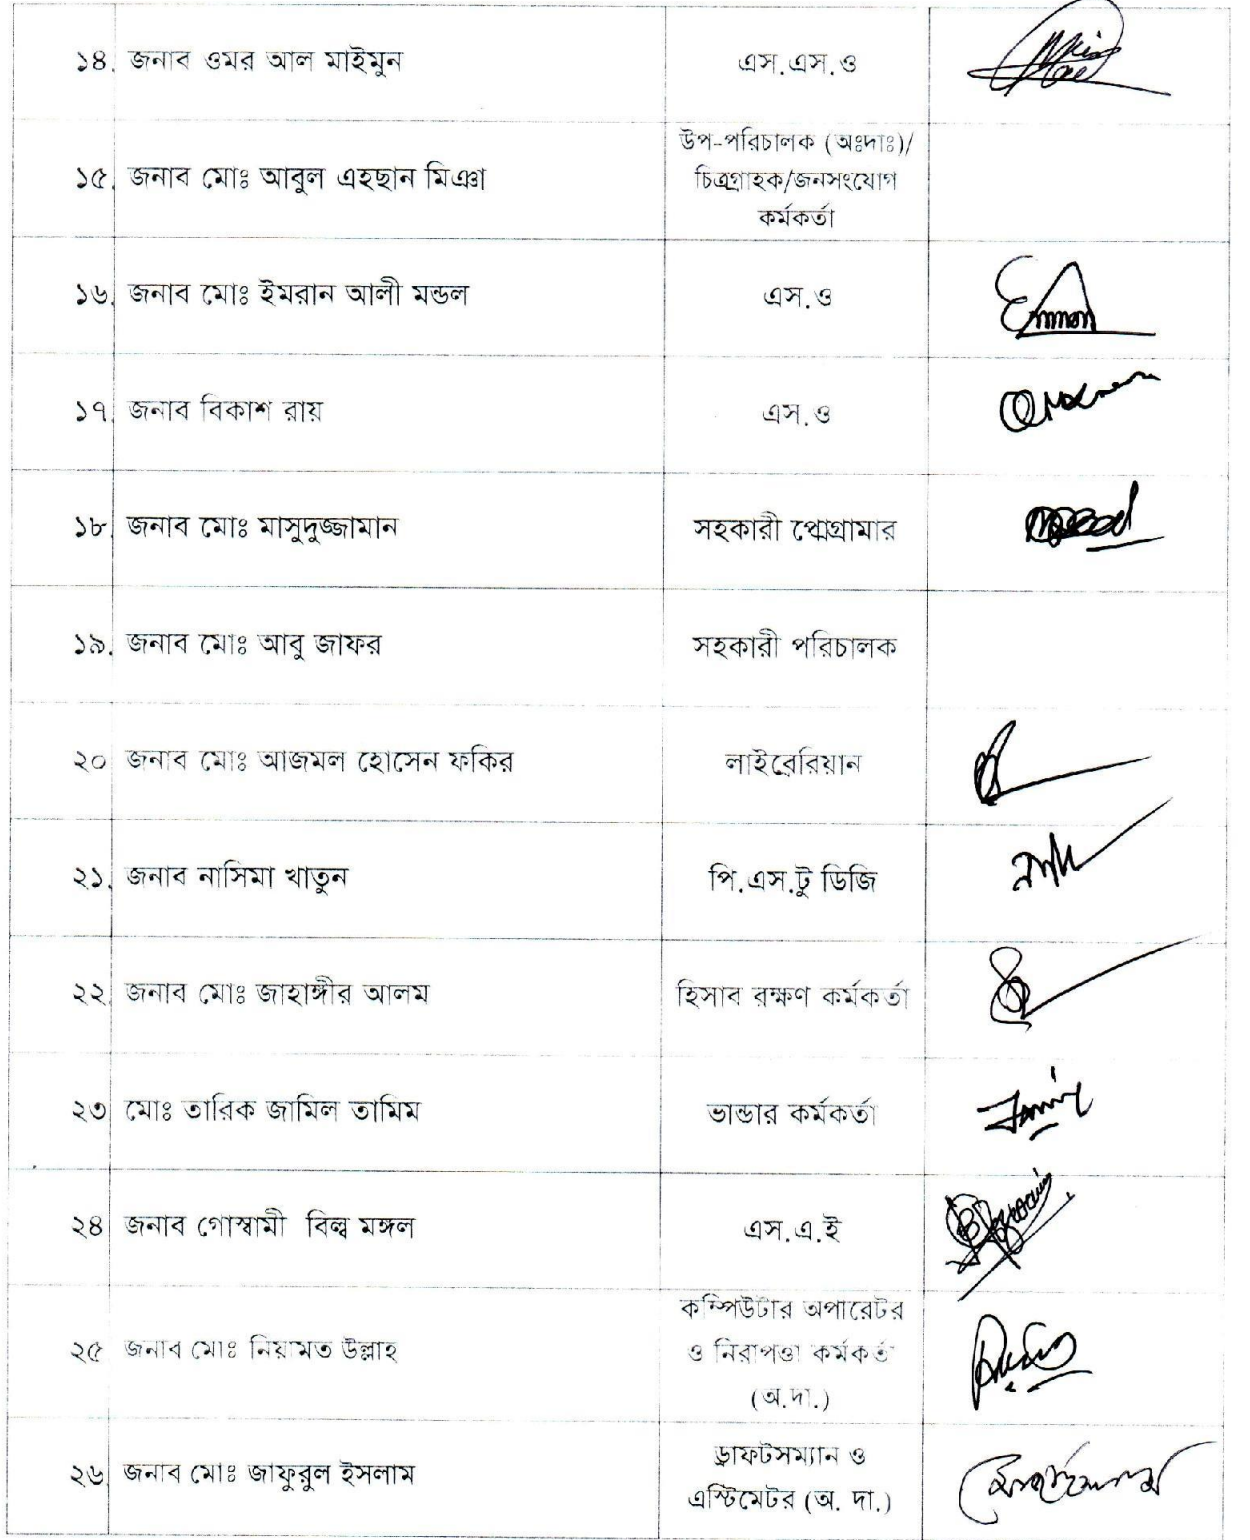 ১৪. জনাব ওমর আল মাইমুন এস.এস.ও
উপ-পরিচালক (অঃদাঃ)/
১৫. জনাব মোঃ আবুল এহছান মিঞা চিত্রগ্রাহক/জনসংযোগ
কর্মকর্তা
১৬. জনাব মোঃ ইমরান আলী মন্ডল এস.ও
১৭. জনাব বিকাশ রায় এস.ও
১৮ জনাব মোঃ মাসুদুজ্জামান সহকারী প্রোগ্রামার
১৯. জনাব মোঃ আবু জাফর সহকারী পরিচালক
২০ জনাব মোঃ আজমল হোসেন ফকির লাইব্রেরিয়ান
২১. জনাব নাসিমা খাতুন পি.এস.টু ডিজি
২২. জনাব মোঃ জাহাঙ্গীর আলম হিসাব রক্ষণ কর্মকর্তা
২৩ মোঃ তারিক জামিল তামিম ভান্ডার কর্মকর্তা
২৪ জনাব গোস্বামী বিল্ব মঙ্গল এস.এ.ই
কম্পিউটার অপারেটর
২৫ জনাব মোঃ নিয়ামত উল্লাহ ও নিরাপত্তা কর্মকর্তা
(অ.দা.)
ড্রাফটসম্যান ও
২৬ জনাব মোঃ জাফুরুল ইসলাম এস্টিমেটর (অ. দা.)